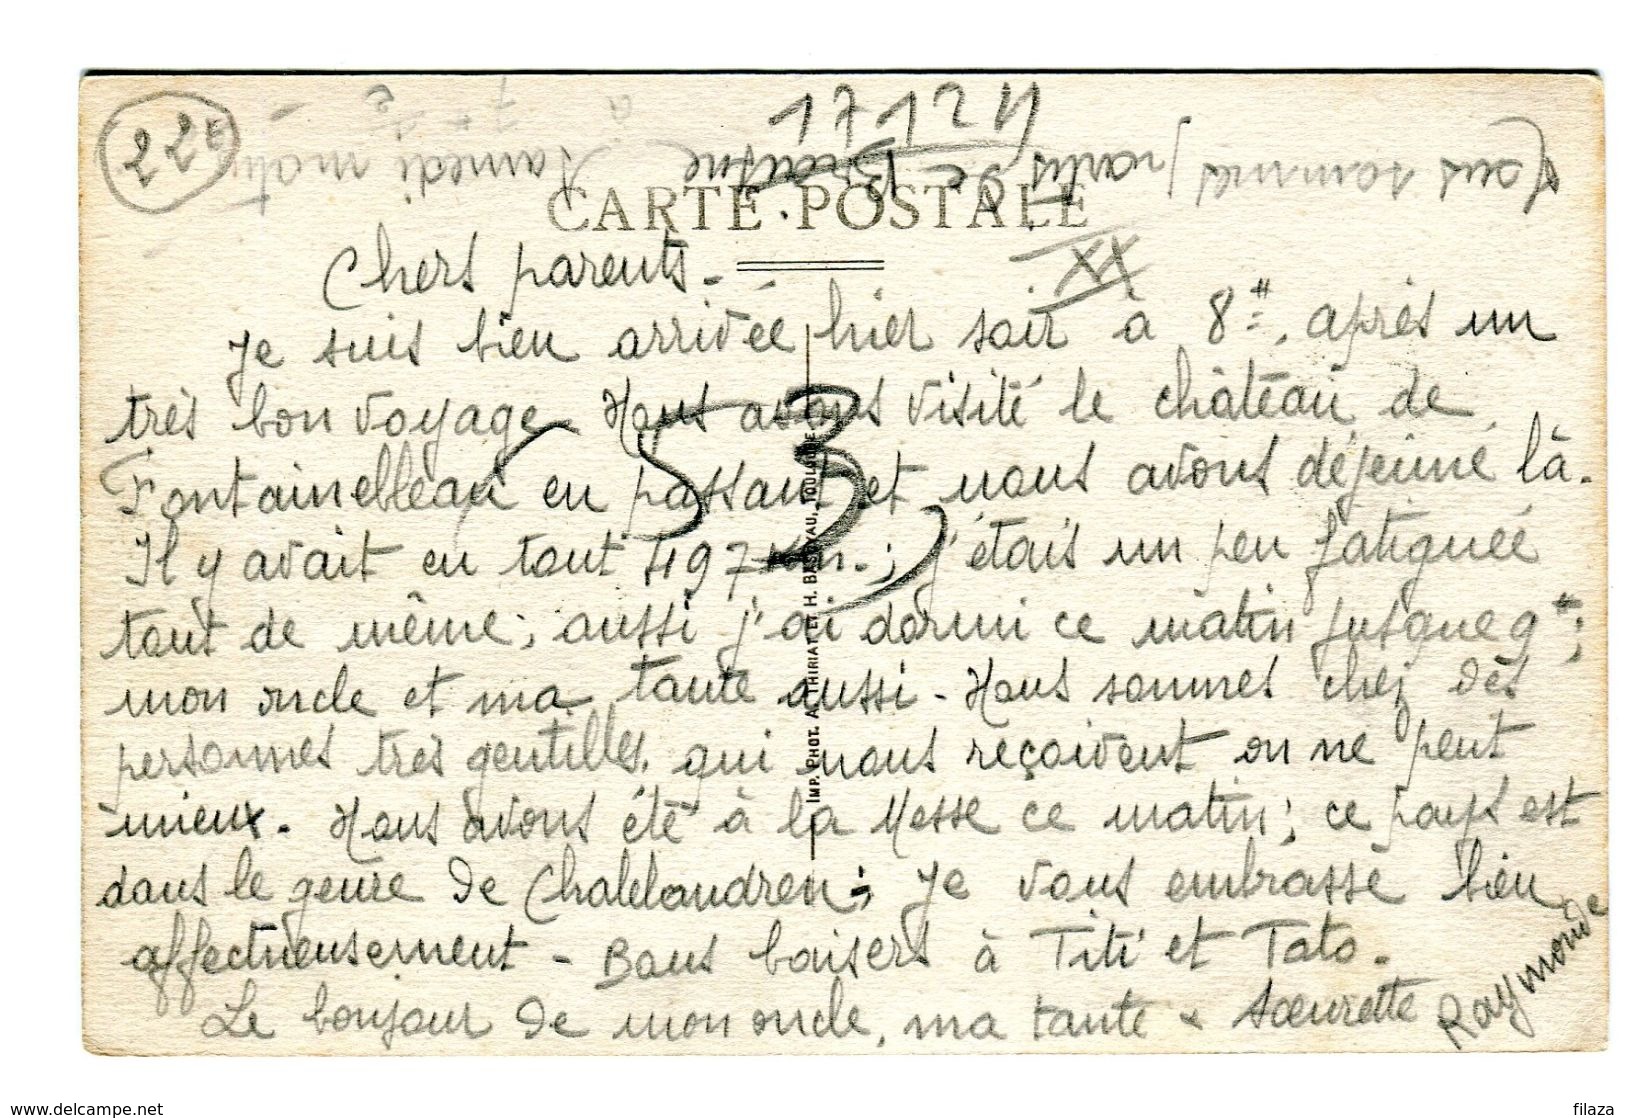 22F
17124
Nous sommes partis de Brousse Samedi matin
à 7 h ½
CARTE POSTALE
XX
Chers parents.
Je suis bien arrivée hier soir à 8 h. après un
très bon voyage. Nous avons visité le château de
Fontainebleau en passant et nous avons déjeuné là.
Il y avait en tout 497 Km.; j'étais un peu fatiguée
tout de même; aussi j'ai dormi ce matin jusque 9 h;
mon oncle et ma tante aussi. Nous sommes chez des
personnes très gentilles, qui nous reçoivent on ne peut
mieux. Nous avons été à la Messe ce matin; ce pays est
dans le genre de Chatelaudren; Je vous embrasse bien
affectueusement - Bons baisers à Titi et Tato.
Le bonjour de mon oncle, ma tante & Sœurette
Raymonde
53
IMP. PHOT. A. THIRIAT ET H. BASUYAU, TOULOUSE
delcampe.net
filaza